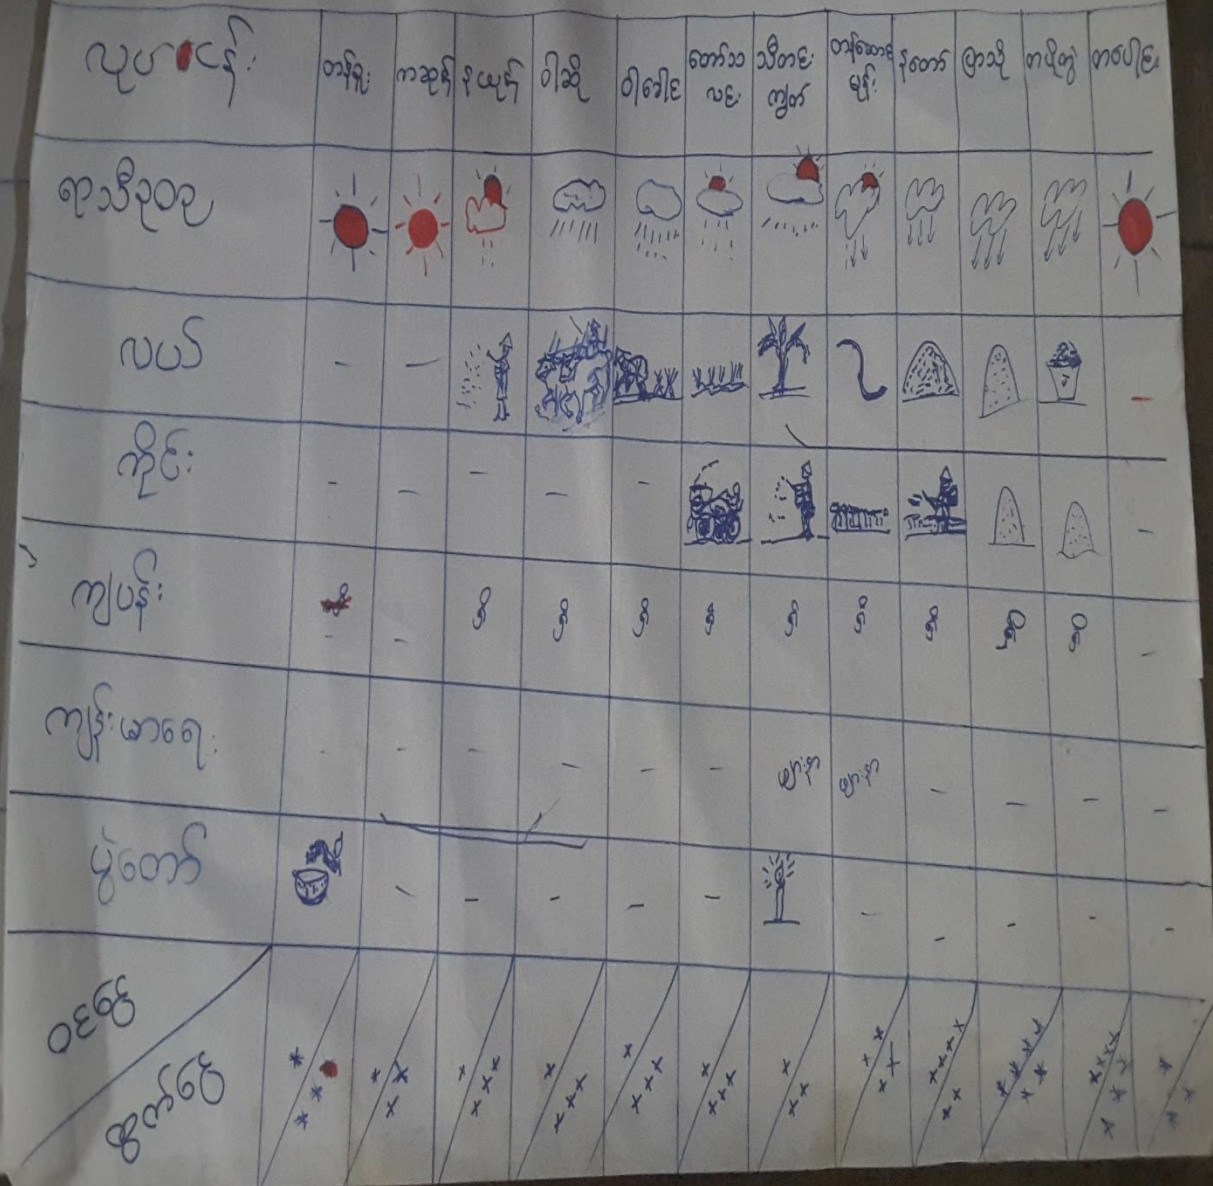 လုပ်ငန်း တန်ခူး ကဆုန် နယုန် ဝါဆို ဝါခေါင် တော်သလင်း သီတင်းကျွတ် တန်ဆောင်မုန်း နတော် ပြာသို တပို့တွဲ တပေါင်း
ရာသီဥတု
လယ်
ကိုင်း
ကျပန်း
ကျန်းမာရေး ဖျားနာ ဖျားနာ
ပွဲတော်
ဝင်ငွေ
ထွက်ငွေ